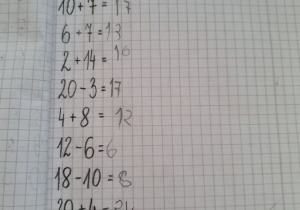 10+7=17
6+7=13
2+14=16
20-3=17
4+8=12
12-6=6
18-10=8
20+4=24